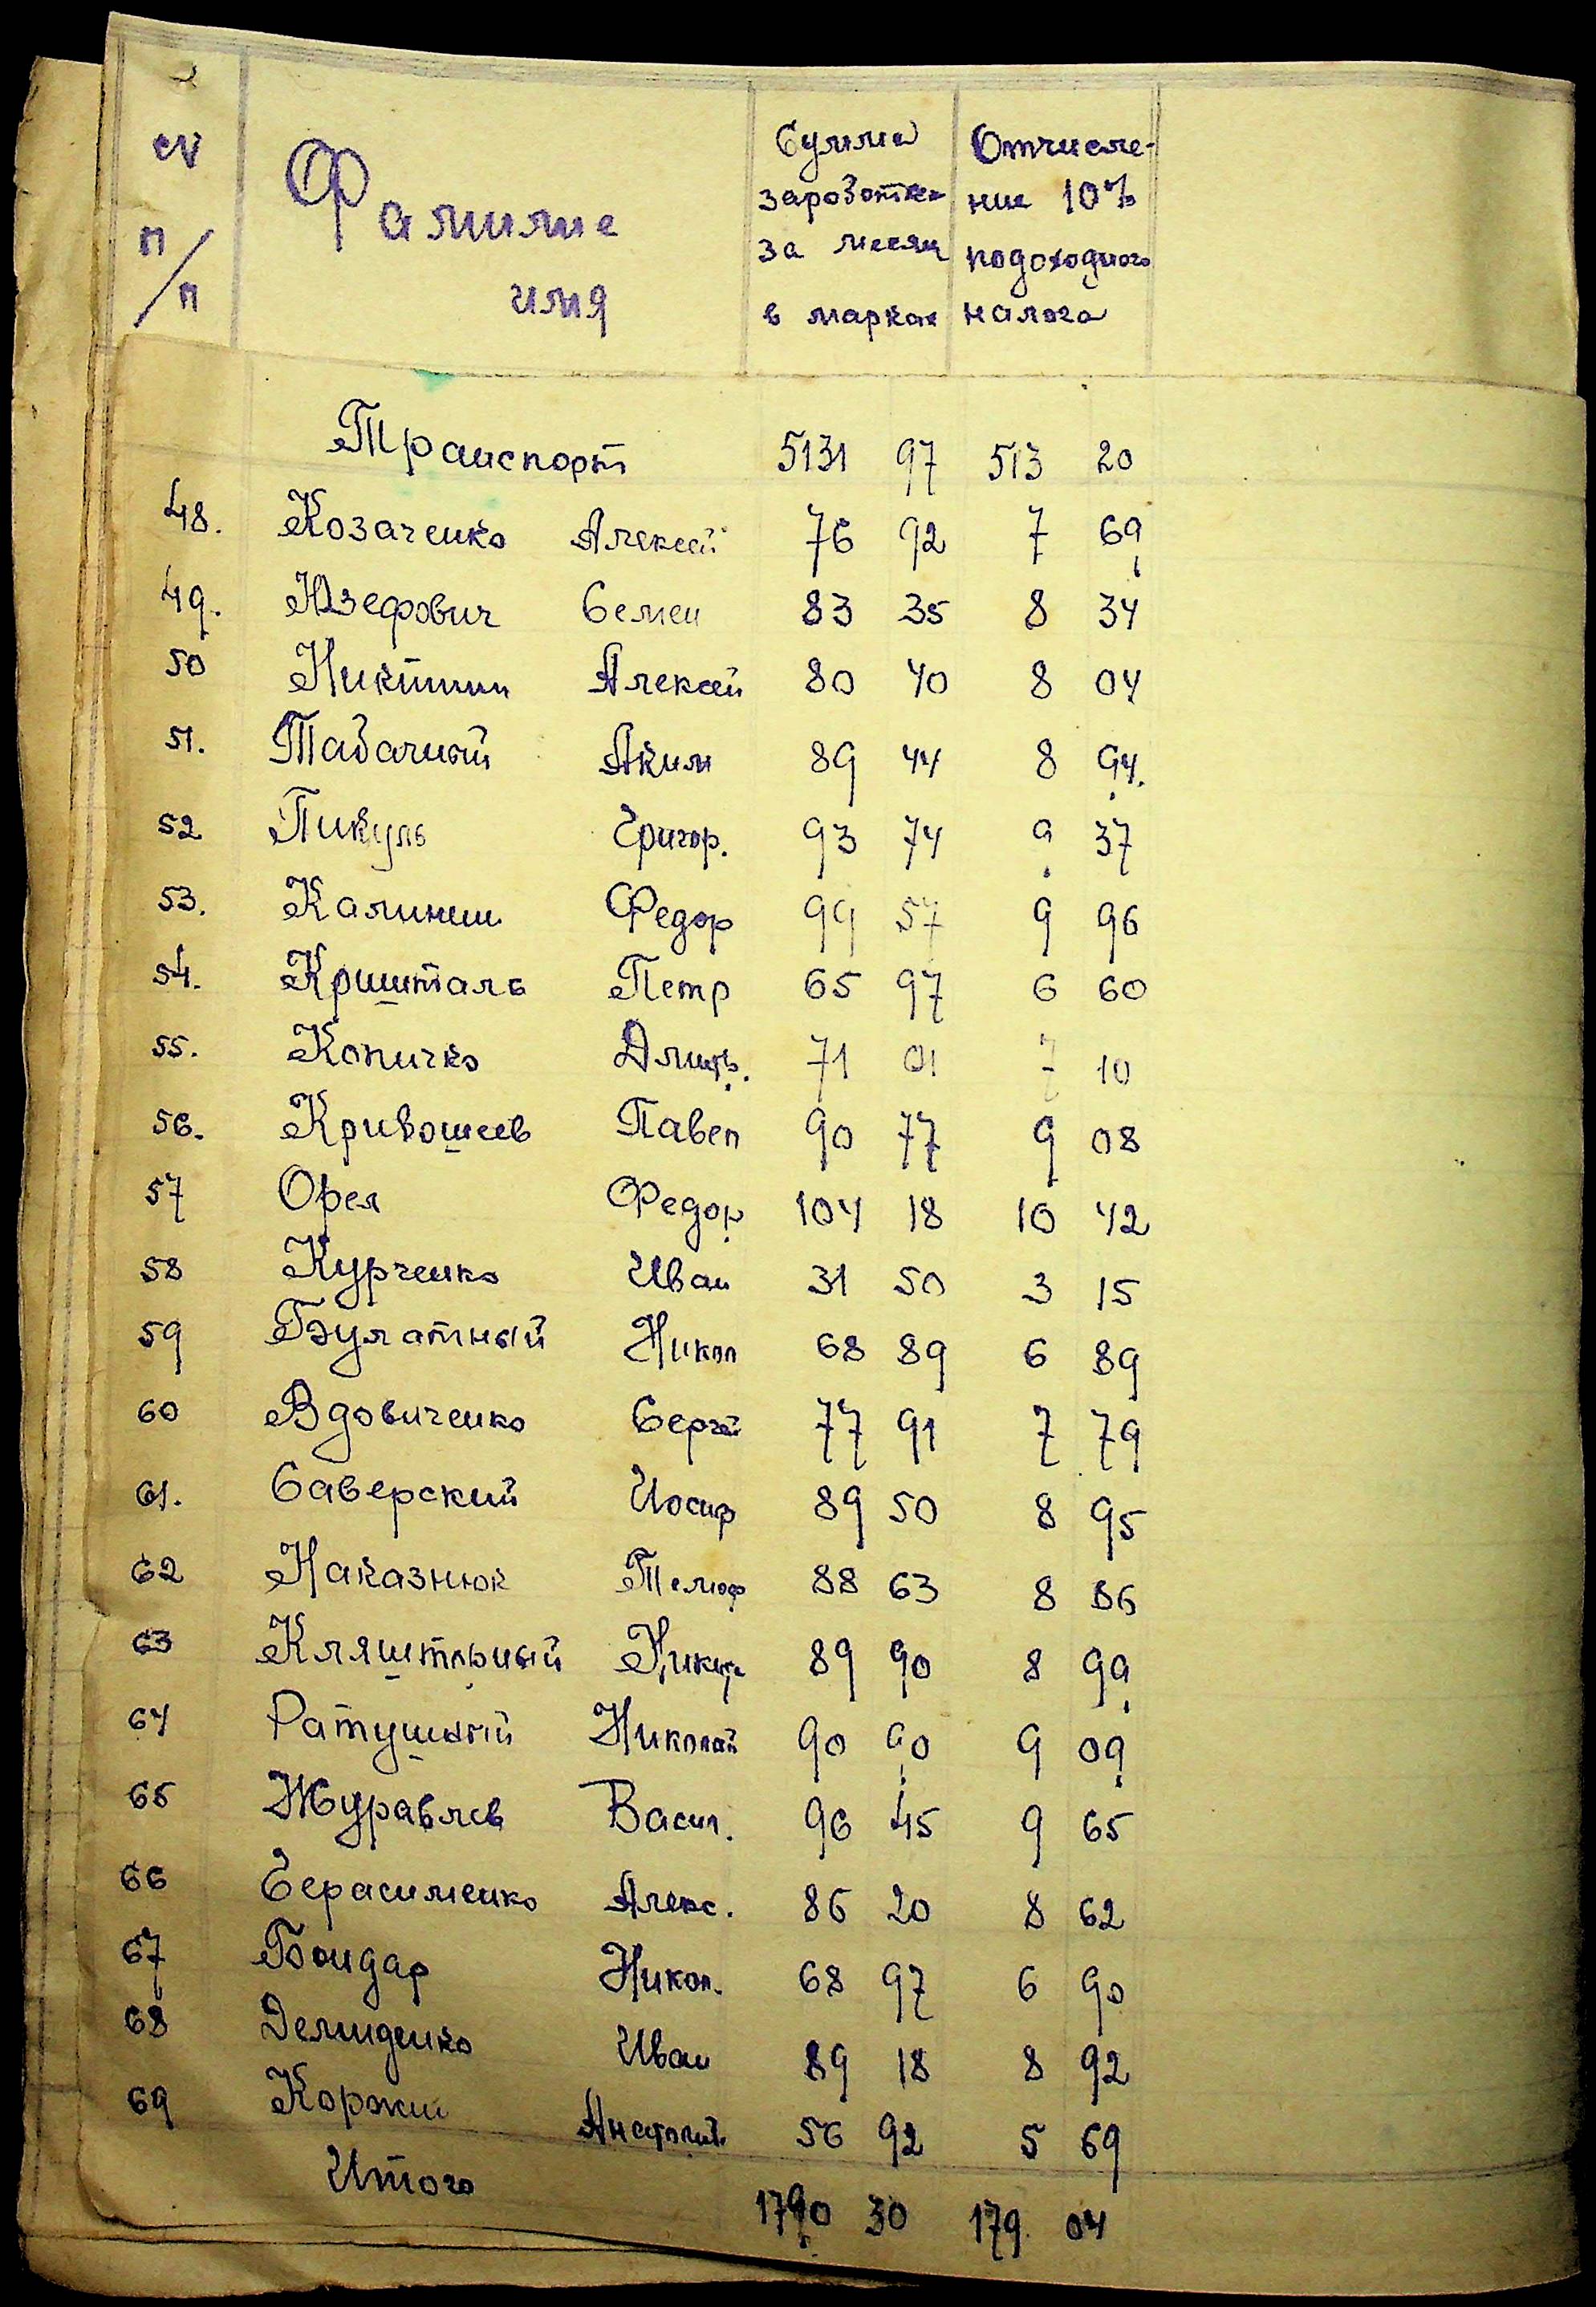 № п/п
Фамилие имя
Сумма заработка за месяц в марках
Отчисление 10% подоходного налога
Транспорт 5131 97 513 20
48. Козаченко Алексей 76 92 7 69
49. Юзефович Семен 83 35 8 34
50 Никитин Алексей 80 40 8 04
51. Табачный Аким 89 44 8 94.
52 Пикуль Григор. 93 74 9 37
53. Калинин Федор 99 57 9 96
54. Кришталь Петр 65 97 6 60
55. Копичко Дмитр. 71 01 7 10
56. Кривошеев Павел 90 77 9 08
57 Орел Федор 104 18 10 42
58 Курченко Иван 31 50 3 15
59 Булатный Никол 68 89 6 89
60 Вдовиченко Сергей 77 91 7 79
61. Саверский Иосиф 89 50 8 95
62 Наказнюк 88 63 8 86
63 Кляшторный 89 90 8 99
64 Ратушный Николай 90 90 9 09
65 Журавлев Васил. 96 45 9 65
66 Герасименко Алекс. 86 20 8 62
67 Бондар Никол. 68 97 6 90
68 Демиденко Иван 89 18 8 92
69 Коржин Анатолий 56 92 5 69
Итого 1790 30 179 04